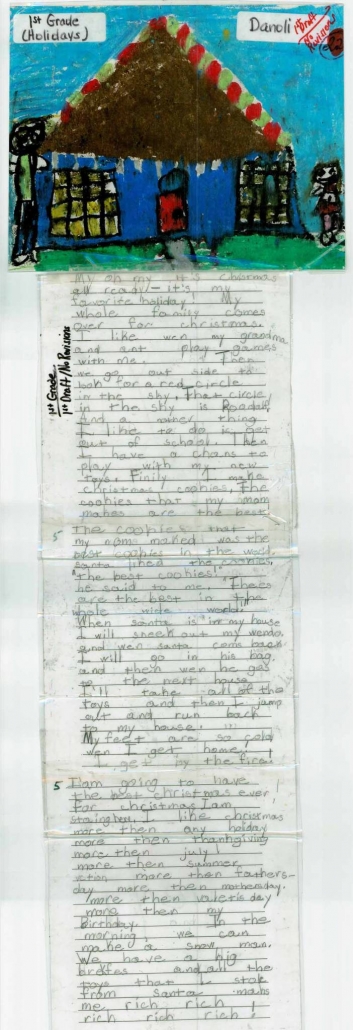 1st Grade
(Holidays)
Danoli
1st Draft
No
Revisions
1st Grade
1st Draft/No Revisions
My oh my it's chrismas
all ready - it's my
favorite holiday! My
whole family comes
over for christmas.
I like wen my grandma
and ant play games
with me. Then
we go out side to
look for a red circle
in the sky, That circle
in the sky is
And a nother thing
I like to do is get
out of school. Then
I have a chans to
play with my new
toys. Finily I make
Christmas cookies, The
cookies that my mom
makes are the best
5 The cookies that
my mom maked was the
best cookies in the world,
santa liked the cookies,
"The best cookies!"
he said to me. "Thees
are the best in the
whole wide world."
When santa is in my house
I will sneek out my windo,
and wen santa coms back
I will go in his bag,
and then wen he gos
to the next house
I'll take all of this
toys and then I jump
out and run back
to my house.
My feet are so cold
wen I get home,
I get by the fire!
5 I am going to have
the best christmas ever!
For christmas I am
staing here, I like christmas
more then any holiday
more then thanhgiving
more then july
more then summer
more then fathers-
day more then mothersday.
more then valetis day
more then my
Birthday. In the
morning we can
make a snow man.
We have a big
brekfes and all the
toys that I stok
from santa maks
me rich rich
rich rich rich!